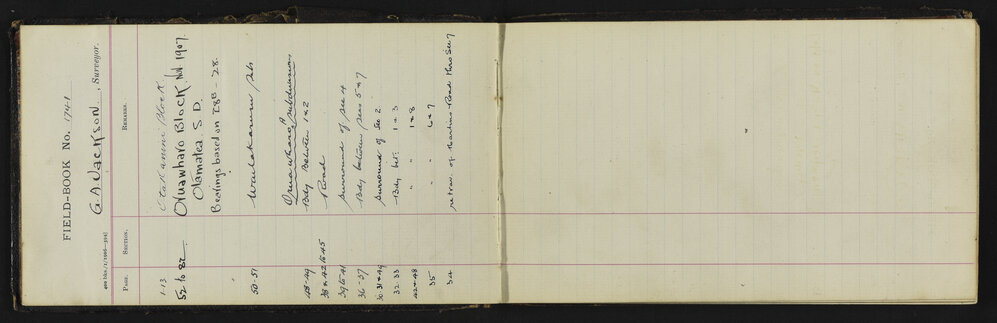 FIELD-BOOK No. 1741
G. A. Jackson, Surveyor.
400 bks./1/1906—304]
PAGE. SECTION. REMARKS.
1-13 Otakanini Block
52 to 82 Oruawharo Block Nov 1907.
Otamatea S.D.
Bearings based on
50-51
48-49 Oruawharo A Subdivision
Bdy between 1 & 2
38 & 42 to 45 Road
39 to 41 Surround of sec 4
36-37 Bdy between secs 5 & 7
30-31 & 49 Surround of sec 2
32-33 Bdy bet. 1 & 3
42 & 48 " " 1 & 8
35 " " 6 & 7
34 retrav. of Road thro Sec 7